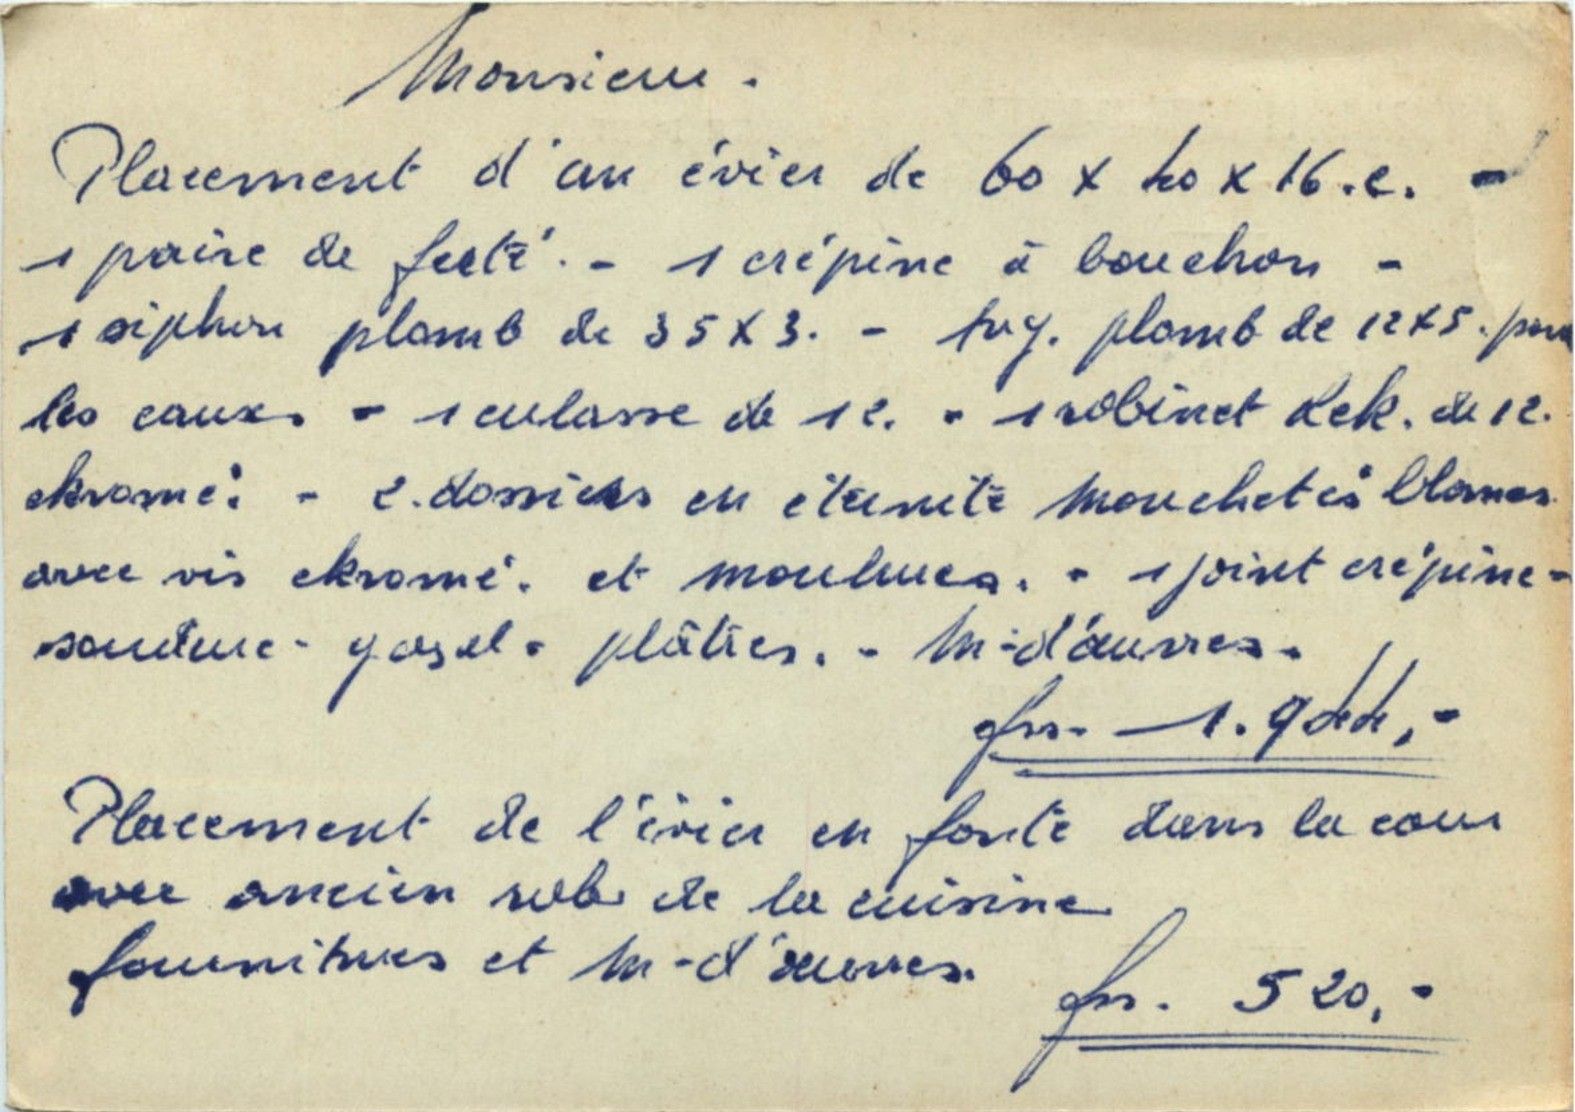 Monsieur.
Placement d'un évier de 60 x 40 x 16.c. -
1 paire de fecté. - 1 crépine à bouchon -
1 siphon plomb de 35 x 3. - tuy. plomb de 12x5. pour
les eaux. - 1 culasse de 12. - 1 robinet Kek. de 12.
chromé. - 2. dossiers en éternite mouchetés blancs.
avec vis chromé. et moulures. - 1 joint crépine -
soudure - gasel - plâtres. - M-d'œuvres.
frs. 1.944,-
Placement de l'évier en fonte dans la cour
avec ancien rob. de la cuisine
fournitures et M-d'œuvres.
frs. 520,-